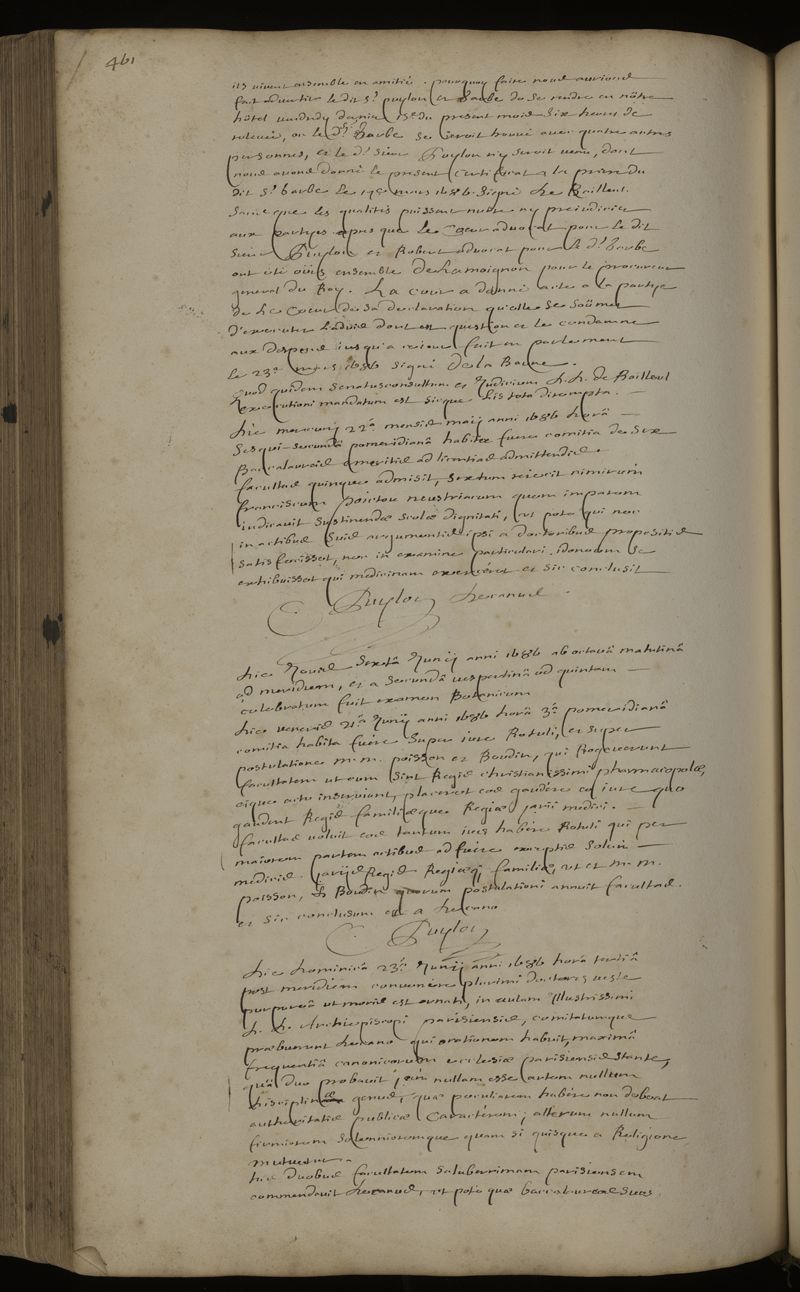 461
ils vivent ensemble en amitié. pourquoy faire nous aurions
fait advertir le dit Sr. puylon et Barbe de se rendre en nôtre
hôtel vendredy dernier 15e du present mois six heures de
relevée, où le dt Sr. Barbe se seroit trouvé avec quatre autres
personnes, et le dt. sieur Puylon n'y seroit venu, dont
nous avons donné le present certificat a la priere du
dit Sr. barbe le 19e mars 1686. signé Le Bailleul.
Sans que les qualités puissent nuire ny preiudicier
aux partyes apres que Le Coeur advocat pour le dit
Sieur Puylon et Robert advocat pour le dt. barbe
ont été oüis ensemble De Lamoignon pour le procureur
general du Roy. La cour a donné acte a la partye
de Le Coeur de sa declaration qu'elle se soûmet
d'executer l'advis dont est question et le condamne
aux despens iusqu'a ce iour fait en parlement
le 23e mars 1686 signé De la Baune.
Quod quidem Senatusconsultum et Judicium D. D. de Bailleul
executioni mandatum est sicque lis tota dirempta.
Die mercurij 22a. mensis maij anni 1686 horâ
sesqui-secundâ pomeridianâ habita fuere comitia de sex
Baccalaureis emeritis ad licentias admittendis.
facultas quinque admisit, sextum reiecit nimirum
franciscum poictou neustriacum quem imparem
iudicavit sustinendæ scolæ dignitati, ut pote qui nec
in actibus suis argumentis ipsi a doctoribus propositis
satis fecisset, nec in examine particulari idoneum se
exhibuisset qui medicinam exerceret et sic conclusit
Puylon Decanus.
Die Jovis sextâ Junij anni 1686 ab octavâ matutinâ
ad meridiem, et a secundâ vespertinâ ad quintam
celebratum fuit examen Botanicum
Die veneris 21a Junij anni 1686 horâ 3a. pomeridianâ
comitia habita fuêre super iure Rotuli, et super
postulatione m.m. poisson et Boudin, qui Rogaverunt
facultatem ut cum sint Regis christianissimi pharmacopolæ,
eique actu inserviant, placeret eos gaudere eo iure quo
gaudent Regis familiæque Regiæ jarii medici.
facultas voluit eos tantum ius habere Rotuli qui per
maiorem partem actibus adfuere exceptis solùm
medicis jarijs Regis Regiæq; familiæ, ut et m. m.
poisson, & Boudin quorum postulationi annuit facultas.
et sic conclusum est a decano
Puylon
Die Dominicâ 23a. Junij anni 1686 horâ tertiâ
post meridiem convenere plurimi doctores veste
purpureâ ut moris est ornati, in aulam Illustrissimi
D. D. Archiepiscopi parisiensis, comitatumque
præbuerunt decano qui orationem habuit, maximâ
frequentiâ canonicorum ecclesiæ parisiensis stante,
quâ duo probavit nullam esse artem nullum
disciplinæ genus, quæ peculiarem habere non debeat
authoritatis publicæ caractérem; alterum nullum
firmiorem solemnioremque quam si quisque a Religione
mutuetur.
his duobus facultatem saluberrimam parisiensem
commendavit decanus, ut pote quæ baccalaureos suos